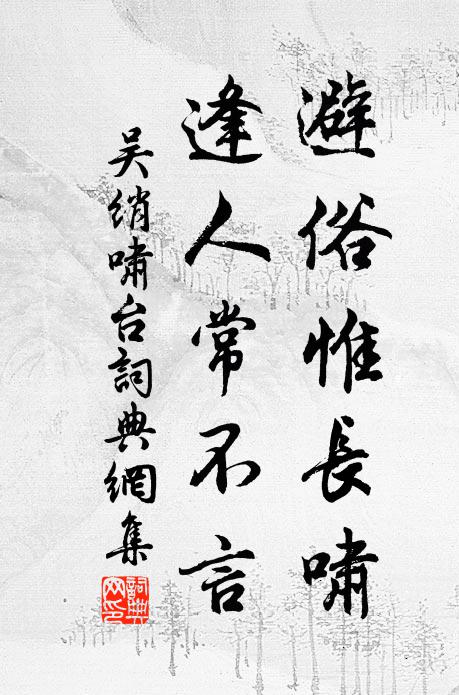 避俗惟長嘯
逢人常不言
吴绡嘯台詞典網集